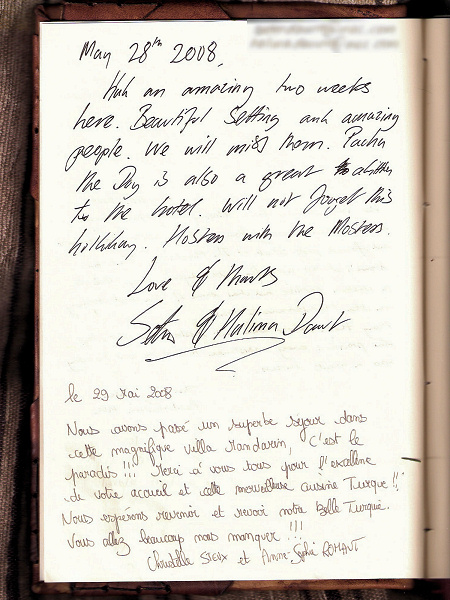 May 28th 2008,
Had an amazing two weeks
here. Beautiful Setting and amazing
people. We will miss them. Pasha
the Dog is also a great addition
to the hotel. Will not forget this
holiday. Hostess with the Mostess.
Love & thanks
& Halima Dawt
le 29 Mai 2008
Nous avons passé un superbe séjour dans
cette magnifique villa Mandarin, c'est le
paradis !!! Merci à vous tous pour l'excellence
de votre accueil et cette merveilleuse cuisine Turque !!
Nous espérons revenir et revoir notre belle Turquie.
Vous allez beaucoup nous manquer !!!
Christelle et Anne-Sophie ROMANT